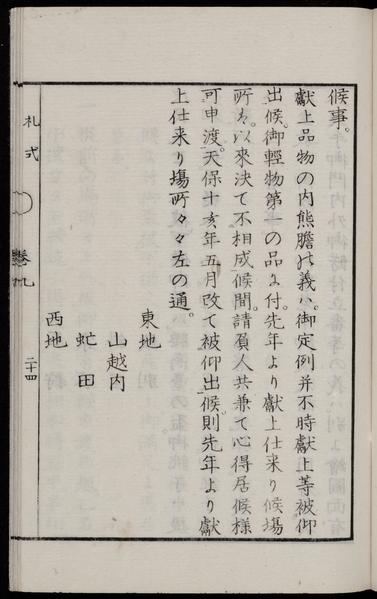 候事。
献上品物の内熊膽の義ハ。御定例并不時献上等被仰
出候。御輕物第一の品に付。先年より献上仕来り候場
所は。以來決て不相成候間。請負人共兼て心得居候様
可申渡。天保十亥年五月改て被仰出候。則先年より献
上仕来り場所々々左の通。
東地
山越内
虻田
西地
札式
巻九
二十四